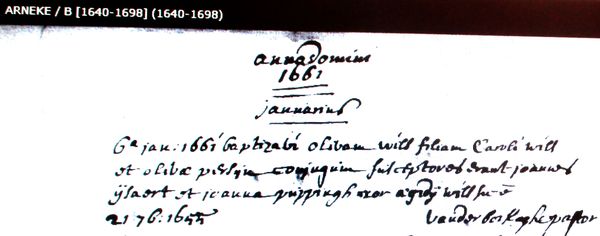 ARNEKE / B [1640-1698] (1640-1698)
anno domini
1661
januarius
6a jan: 1661 baptizavi olivam will filiam Caroli will
et olivæ conjugum susceptores erant joannes
ijsaert et joanna puppingh uxor will
vanderborghe pastor